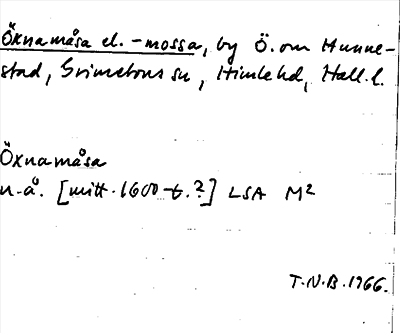 Öxnamåsa el. -mossa, by Ö. om Hunne-
stad, Grimetons sn, Himle hd, Hall. l.
Öxnamåsa
u.å. [mitt. 1600-t.?] LSA M2
T.N.B. 1966.